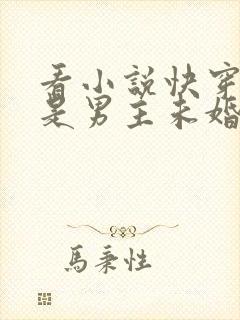 看小說快穿
是男主未婚
馬秉性